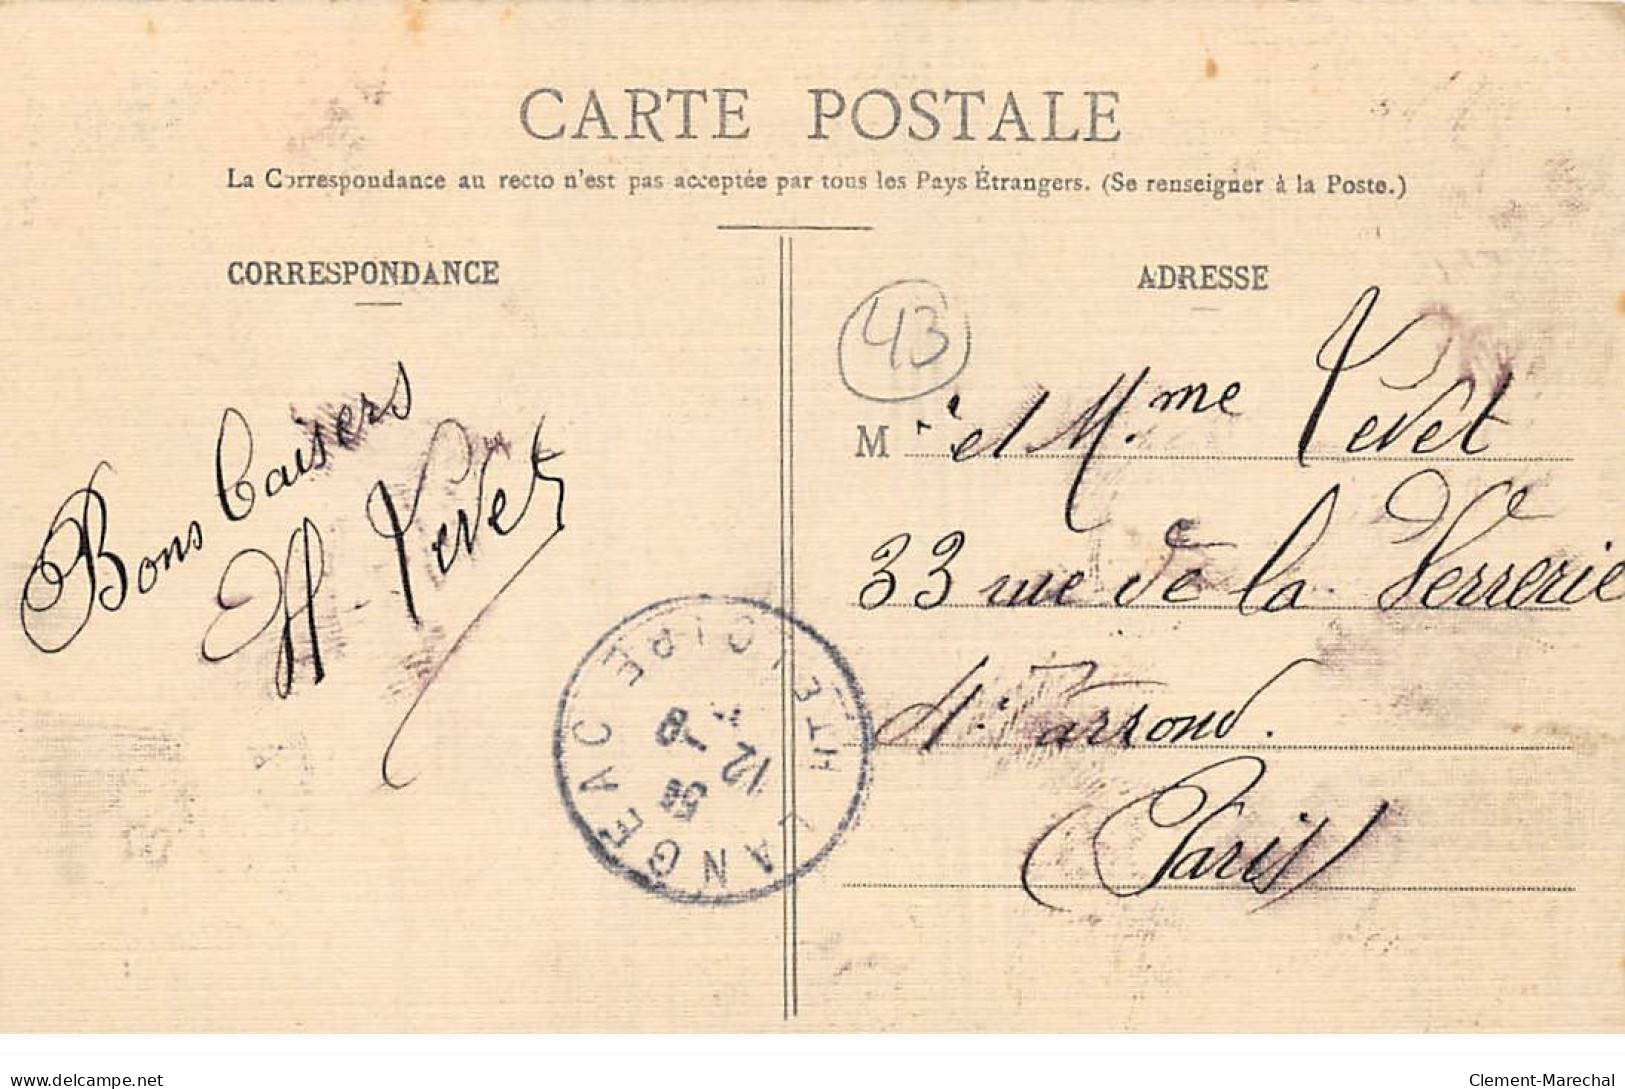 CARTE POSTALE
La Correspondance au recto n'est pas acceptée par tous les Pays Étrangers. (Se renseigner à la Poste.)
CORRESPONDANCE
ADRESSE
43
Bons baisers
H Vevet
M r et M.me Vevet
33 rue de la Verrerie
4e arrond.
Paris
LANGEAC HTE LOIRE
12
8
delcampe.net
Clement-Marechal